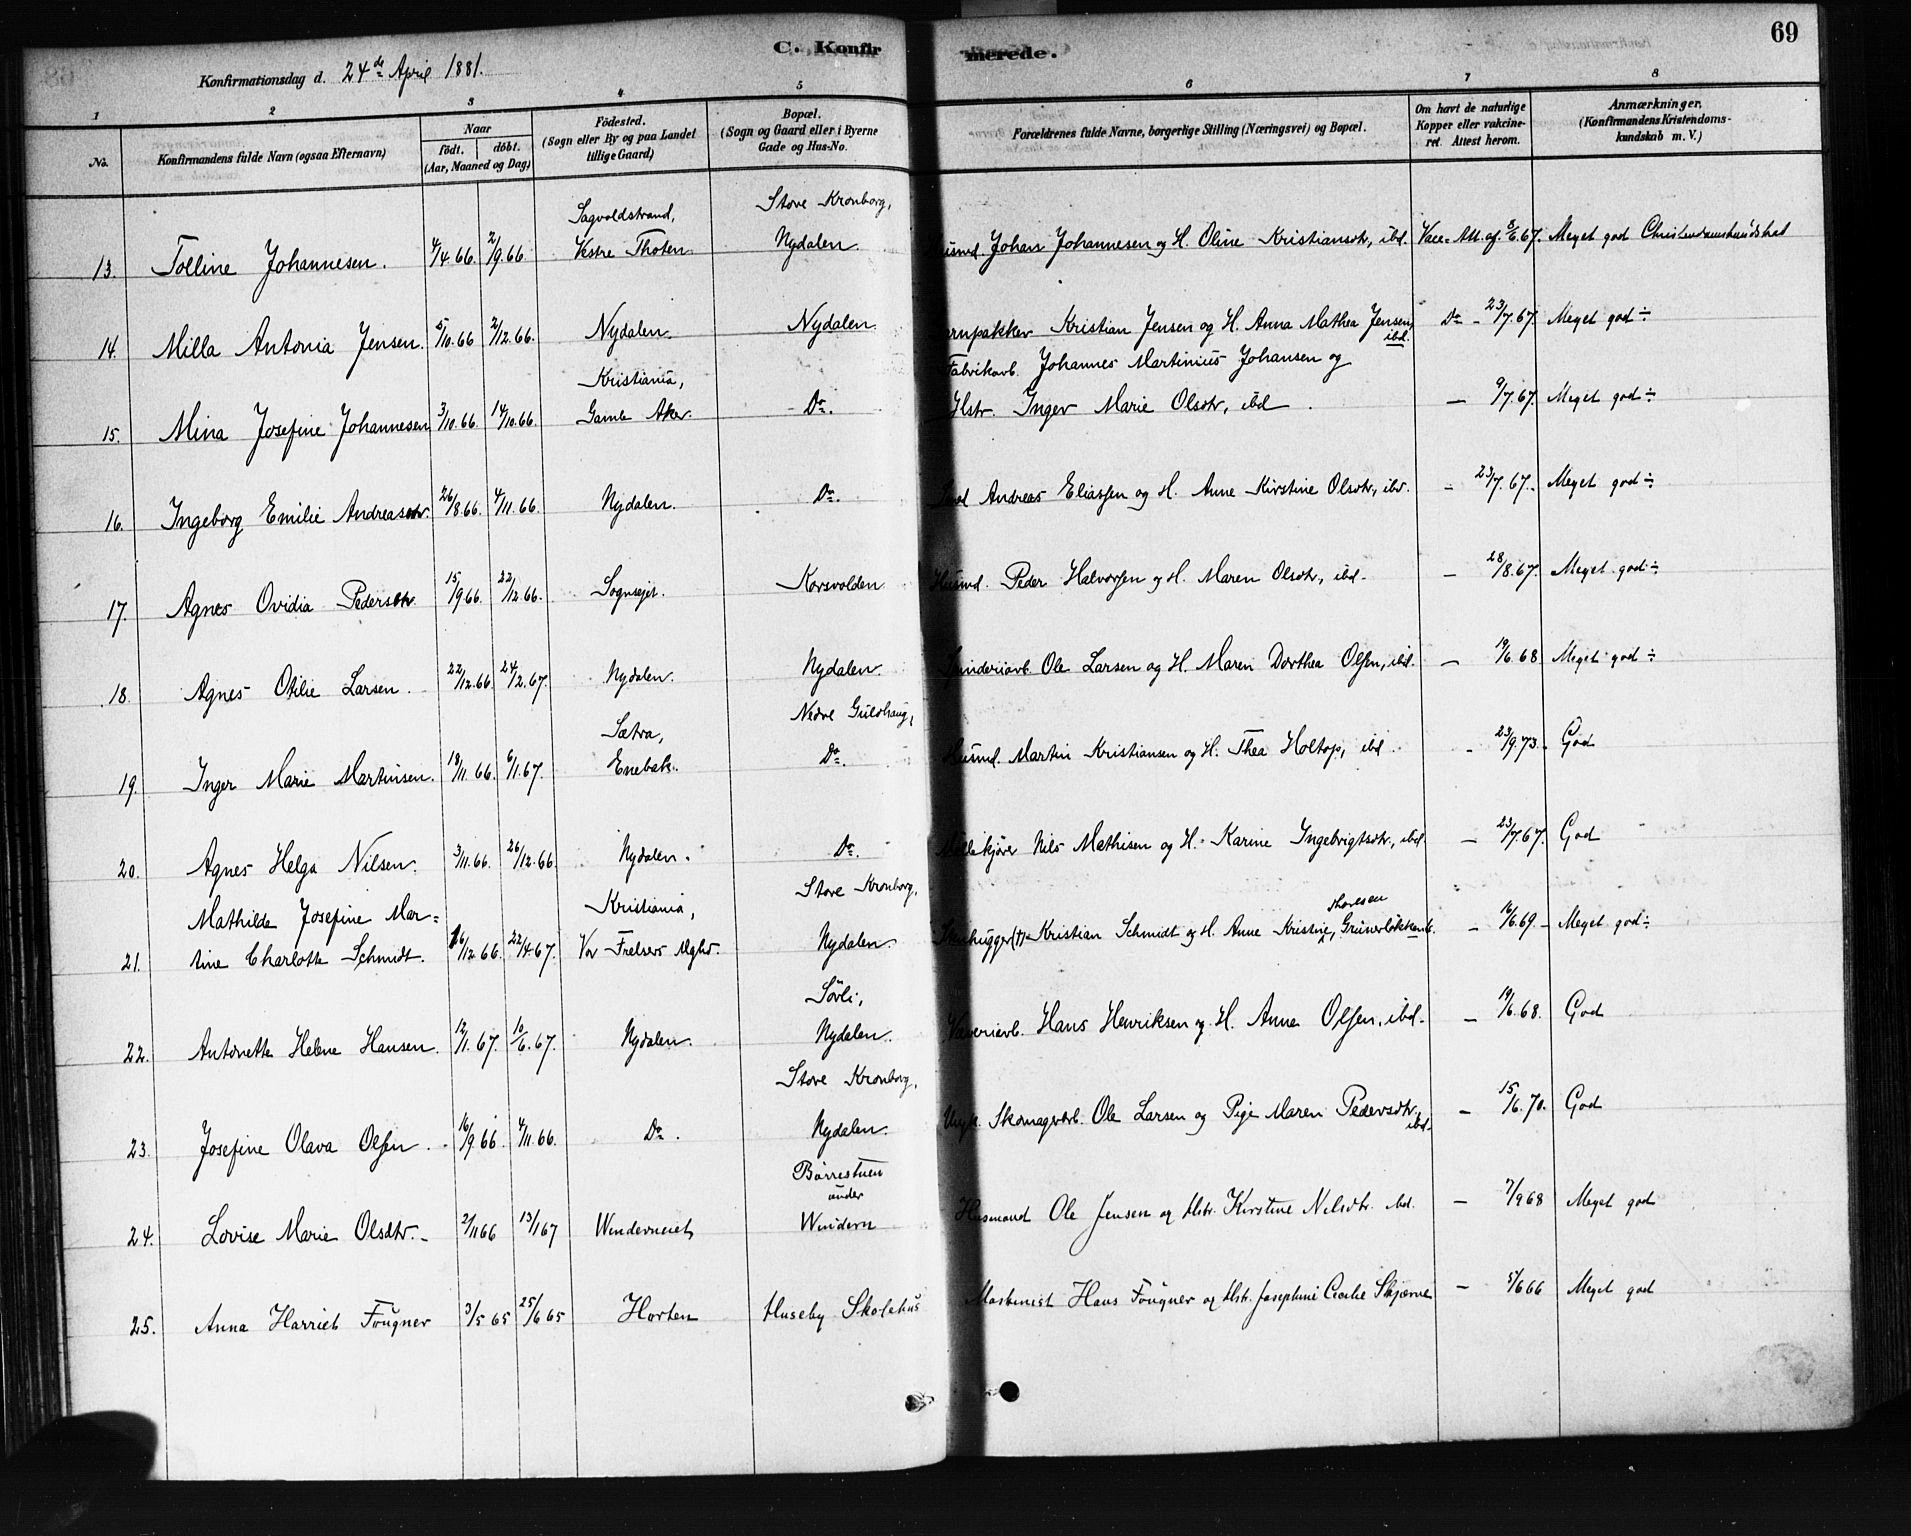 69
C. Konfirmerede.
Konfirmationsdag d. 24de April 1881.
1 2 3 4 5 6 7 8
No.
Konfirmandens fulde Navn (ogsaa Efternavn)
Naar
födt. döbt.
(Aar, Maaned og Dag)
Födested.
(Sogn eller By og paa Landet
tillige Gaard)
Bopæl.
(Sogn og Gaard eller i Byerne
Gade og Hus-No.
Forældrenes fulde Navne, borgerlige Stilling (Næringsvei) og Bopæl.
Om havt de naturlige
Kopper eller vakcine-
ret. Attest herom.
Anmærkninger,
(Konfirmandens Kristendoms-
kundskab m. V.)
Sagvoldstrand, Store Kronborg,
13. Tolline Johannesen. 4/4.66. 2/9.66. Vestre Thoten. Nydalen. Johan Johannesen og H. Oline Kristiansdtr, ibd. Vacc. Att. af 3/6.67. Meget god Christendomskundskab
14. Milla Antonia Jensen. 5/10.66 2/12.66. Nydalen. Nydalen. Kristian Jensen og H. Anna Mathea Jensen, ibd. Do - 23/7.67. Meget god ÷
Kristiania, Fabrikarb. Johannes Martinius Johansen og
15. Mina Josefine Johannesen 3/10.66. 14/10.66. Gamle Aker. Do. Hstr. Inger Marie Olsdtr, ibd. — 9/7.67. Meget god ÷
16. Ingeborg Emilie Andreasdtr. 26/8.66. 4/11.66. Nydalen. Do. Andreas Eliassen og H. Anne Kirstine Olsdtr, ibd. - 23/7.67. Meget god ÷
17. Agnes Ovidia Pedersdtr. 15/9.66. 22/12.66. Sognsejet. Korsvolden Husmd. Peder Halvorsen og H. Maren Olsdtr, ibd. — 28/8.67. Meget god ÷
18. Agnes Otilie Larsen. 22/12.66. 24/2.67. Nydalen. Nydalen. Spinderiarb. Ole Larsen og H. Maren Dorthea Olsen, ibd. — 19/6.68 Meget god ÷
Sætra, Nedre Guldhaug,
19. Inger Marie Martinsen. 18/11.66. 6/1.67. Enebak. Do. Husmd. Martin Kristiansen og H. Thea Holtop, ibd. - 23/9.73. God
20. Agnes Helga Nilsen. 3/11.66. 26/12.66. Nydalen. Do. Nils Mathisen og H. Karine Ingebrigtsdtr, ibd. — 23/7.67. God
Mathilde Josefine Mar= Kristiania, Store Kronborg, Thoresen
21. tine Charlotte Schmidt. 16/12.66. 22/4.67. Vor Frelsers Mghd. Nydalen. Stenhugger (†) Kristian Schmidt og H. Anne Kristine, Grünerløkken. - 16/6.69. Meget god ÷
Sörli,
22. Antonette Helene Hansen. 12/1.67. 10/6.67. Nydalen. Nydalen. Væveriarb. Hans Henriksen og H. Anne Olsen, ibd. — 19/6.68. God
Store Kronborg,
23. Josefine Olava Olsen. 16/9.66. 4/11.66. Do. Nydalen. Ungk. Skomagerarb. Ole Larsen og Pige Maren Pedersdtr, ibd. — 15/6.70. God
Börrestuen
under
24. Lovise Marie Olsdtr. 2/11 66 13/1 67 Winderneiet Windern Husmand Ole Jensen og Hstr. Kirstine Nilsdtr. ibd. — 7/9 68 Meget god
25. Anna Harriet Fougner 3/5 65 25/6 65 Horten Huseby Skolehus Maskinist Hans Fougner og Hstr. Josephine Cecilie Skjerve — 5/6 66 Meget god